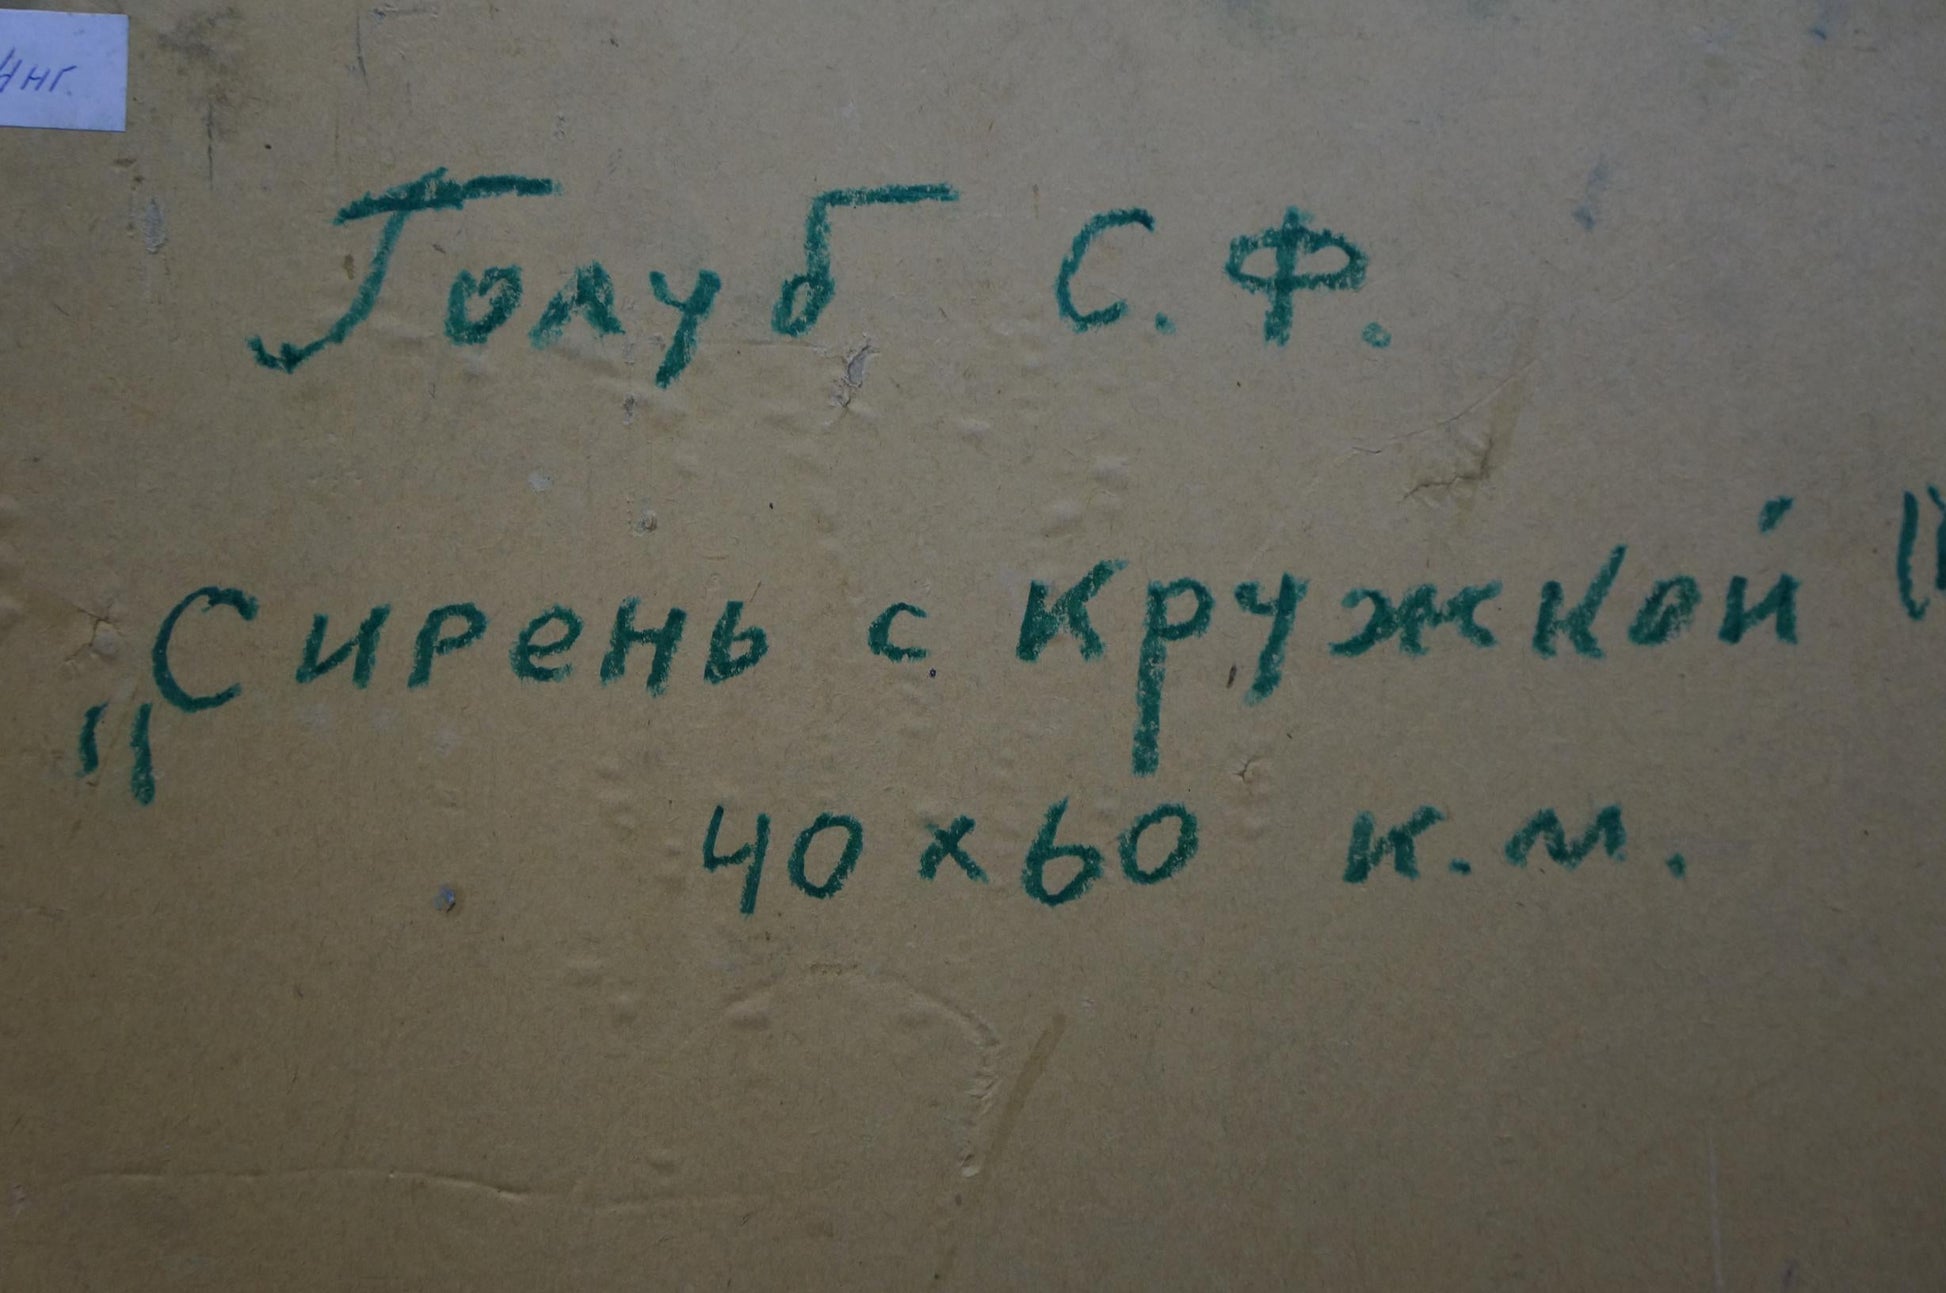 Голуб С. Ф.
„Сирень с кружкой"
40 х 60 к. м.